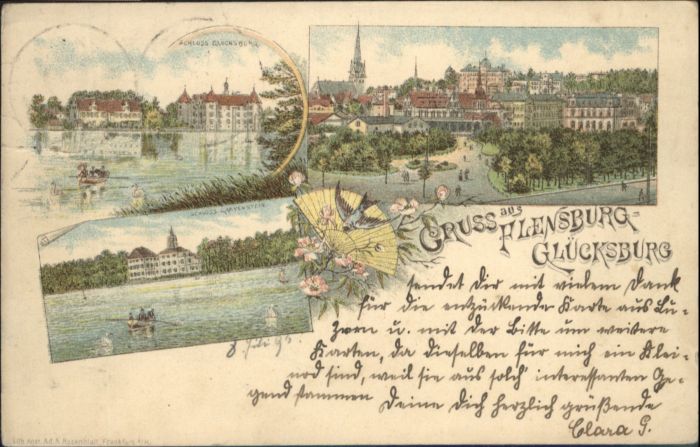 SCHLOSS GLÜCKSBURG
SCHLOSS
GRUSS aus FLENSBURG-
GLÜCKSBURG
sendet Dir mit vielem Dank
für die entzückende Karte aus Lu-
zern u. mit der Bitte um weitere
Karten, da dieselben für mich ein Klei-
nod sind, weil sie aus solch' interessanten Ge-
gend stammen Deine Dich herzlich grüßende
Clara
8. Juli 93
Lith. Anst. Ad. A. Rosenblatt, Frankfurt a/M.